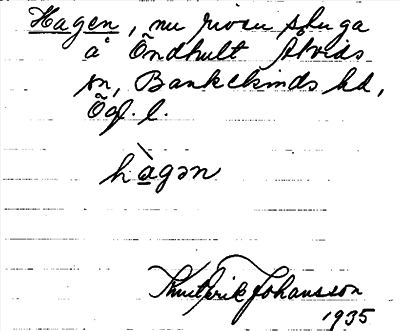 Hagen, nu riven stuga
å Öndhult Åtvids
sn, Bankekinds hd,
Ögl. l.
hàgən
Knut Erik Johansson
1935